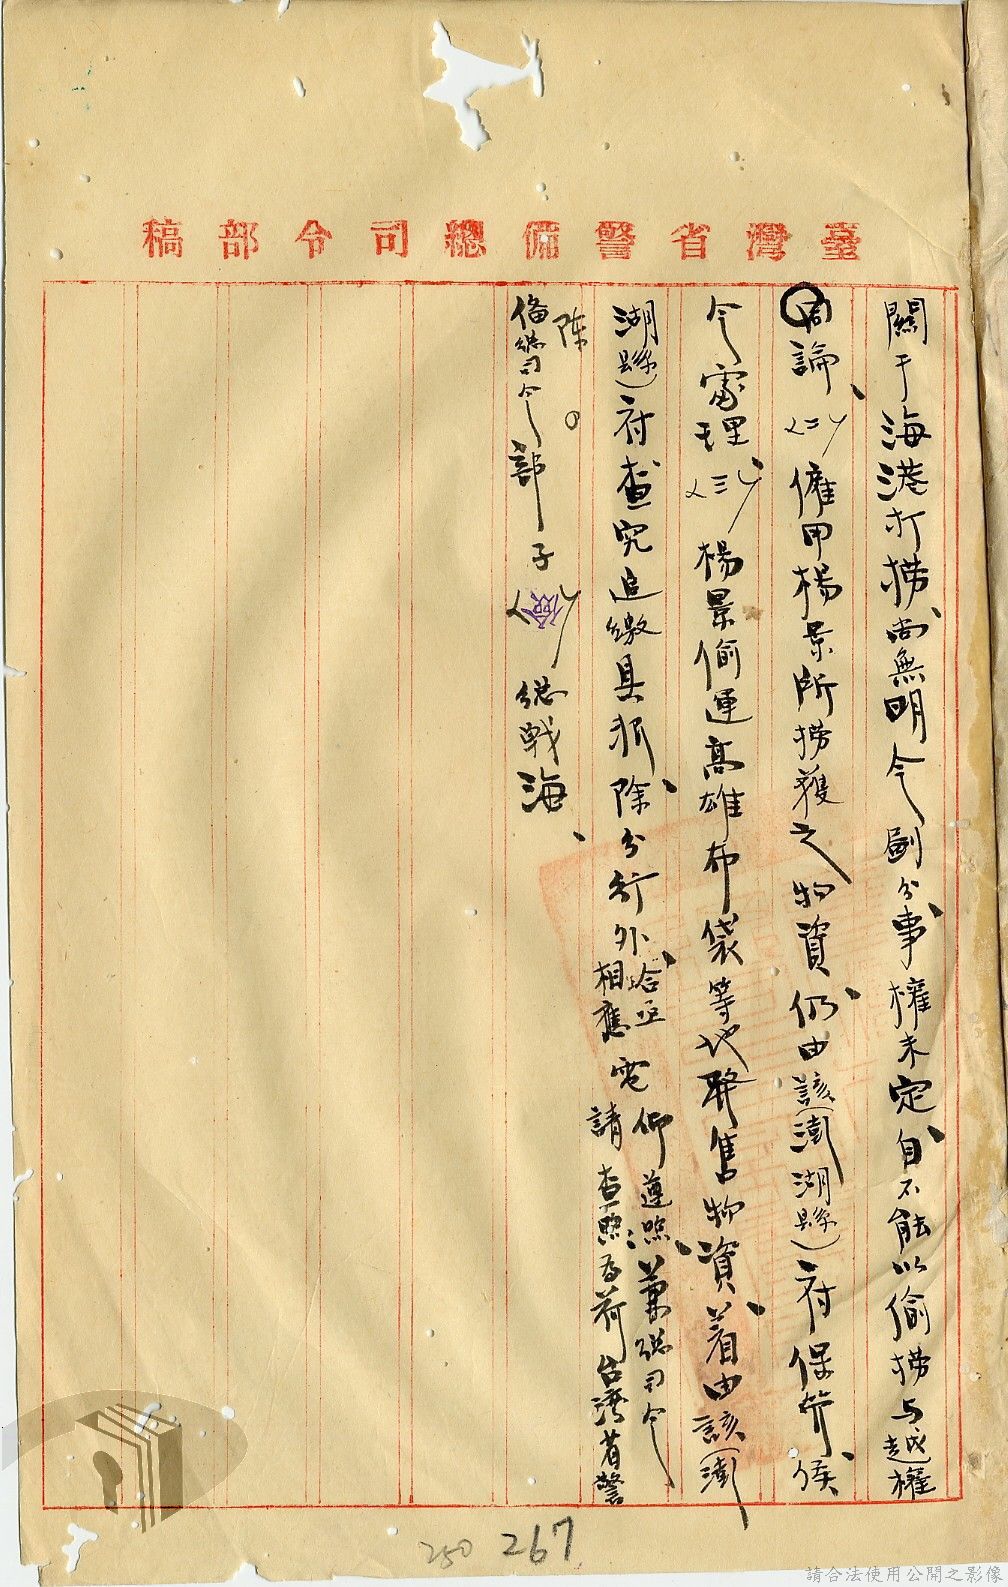 臺灣省警備總司令部稿
關于海港打撈、尚無明令劃分、事權未定、自不能以偷撈与越權
同論、(二)僱甲楊景所撈獲之物資、仍由該(澎湖縣)府保管、候
令處理、(三)楊景偷運高雄布袋等地聯售物資、着由該(澎
湖縣)府查究追繳具報、除分行外、合亟相應電仰請遵照、查照為荷兼總司令台灣省警
陳。備總司令部子(儉)總戰海、
250 267
請合法使用公開之影像